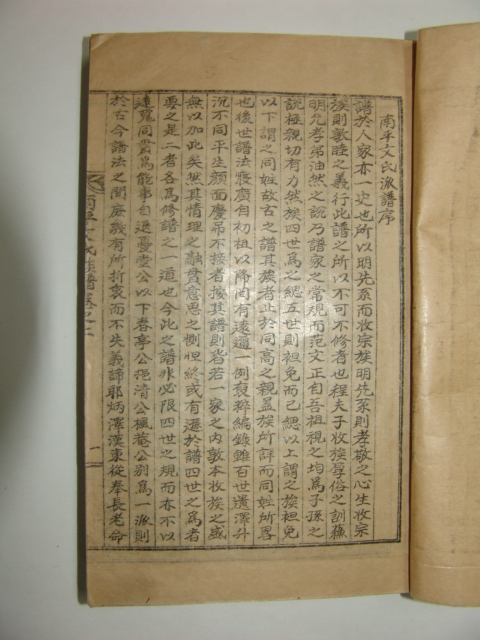 南平文氏派譜序
譜於人家亦一史也所以明先系而收宗族明先系則孝敬之心生收宗
族則敦睦之義行此譜之所以不可不修者也程夫子收族厚俗之訓蘇
明允孝弟油然之說乃譜家之常規而范文正自吾祖視之均爲子孫之
說極親切有力然族四世爲之緦五世則袒免而已緦以上謂之族袒免
以下謂之同姓故古之譜其族者止於同高之親盖族所詳而同姓所畧
也後世譜法寢廣自初祖以降罔有遠邇一例裒稡編錄雖百世遺澤弁
況不同平生顔面慶吊不接者按其譜則皆若一家之內敦本收族之盛
無以加此矣然其情理之融貫意思之惻怛終或有遜於譜四世之爲者
要之是二者各爲修譜之一道也今此之譜非必限四世之規而亦不以
遠蒐同貫爲能事自退憂堂公以下春亭公挹淸公楓菴公別爲一派則
於古今譜法之間庶幾有所折衷而不失義諦耶炳澤漢東從奉長老命
南平文氏族譜卷之一
一